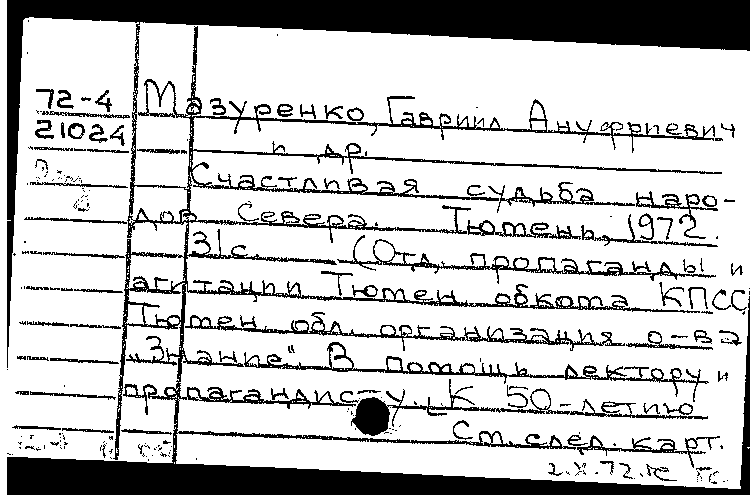 72-4 Мазуренко, Гавриил Ануфриевич
21024
и др.
Счастливая судьба наро-
дов Севера. Тюмень, 1972.
31с. (Отд. пропаганды и
агитации Тюмен. обкома КПСС
Тюмен. обл. организация о-ва
„Знание". В помощь лектору и
пропагандисту. К 50-летию
См. след. карт.
2.X.72.